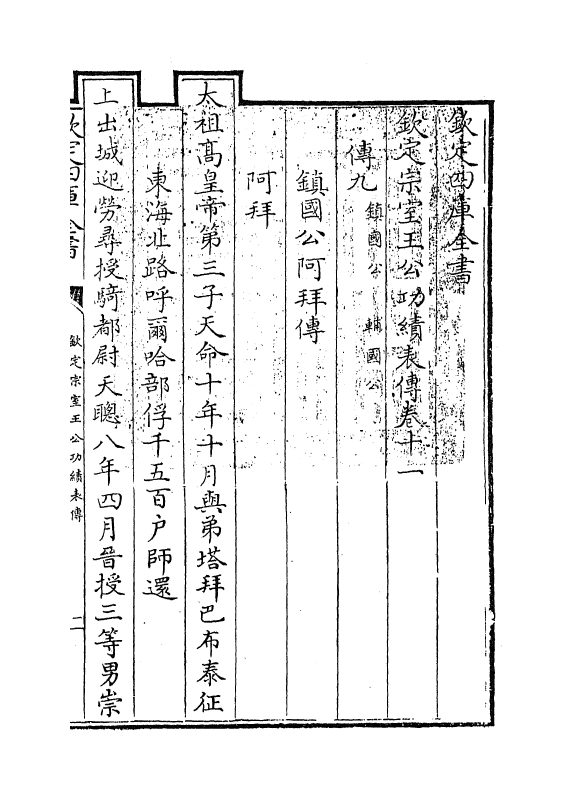 欽定四庫全書
欽定宗室王公功績表傳卷十一
傳九 鎮國公 輔國公
鎮國公阿拜傳
阿拜
太祖高皇帝第三子天命十年十月與弟塔拜巴布泰征
東海北路呼爾哈部俘千五百户師還
上出城迎勞尋授騎都尉天聰八年四月晉授三等男崇
欽定四庫全書
欽定宗室王公功績表傳